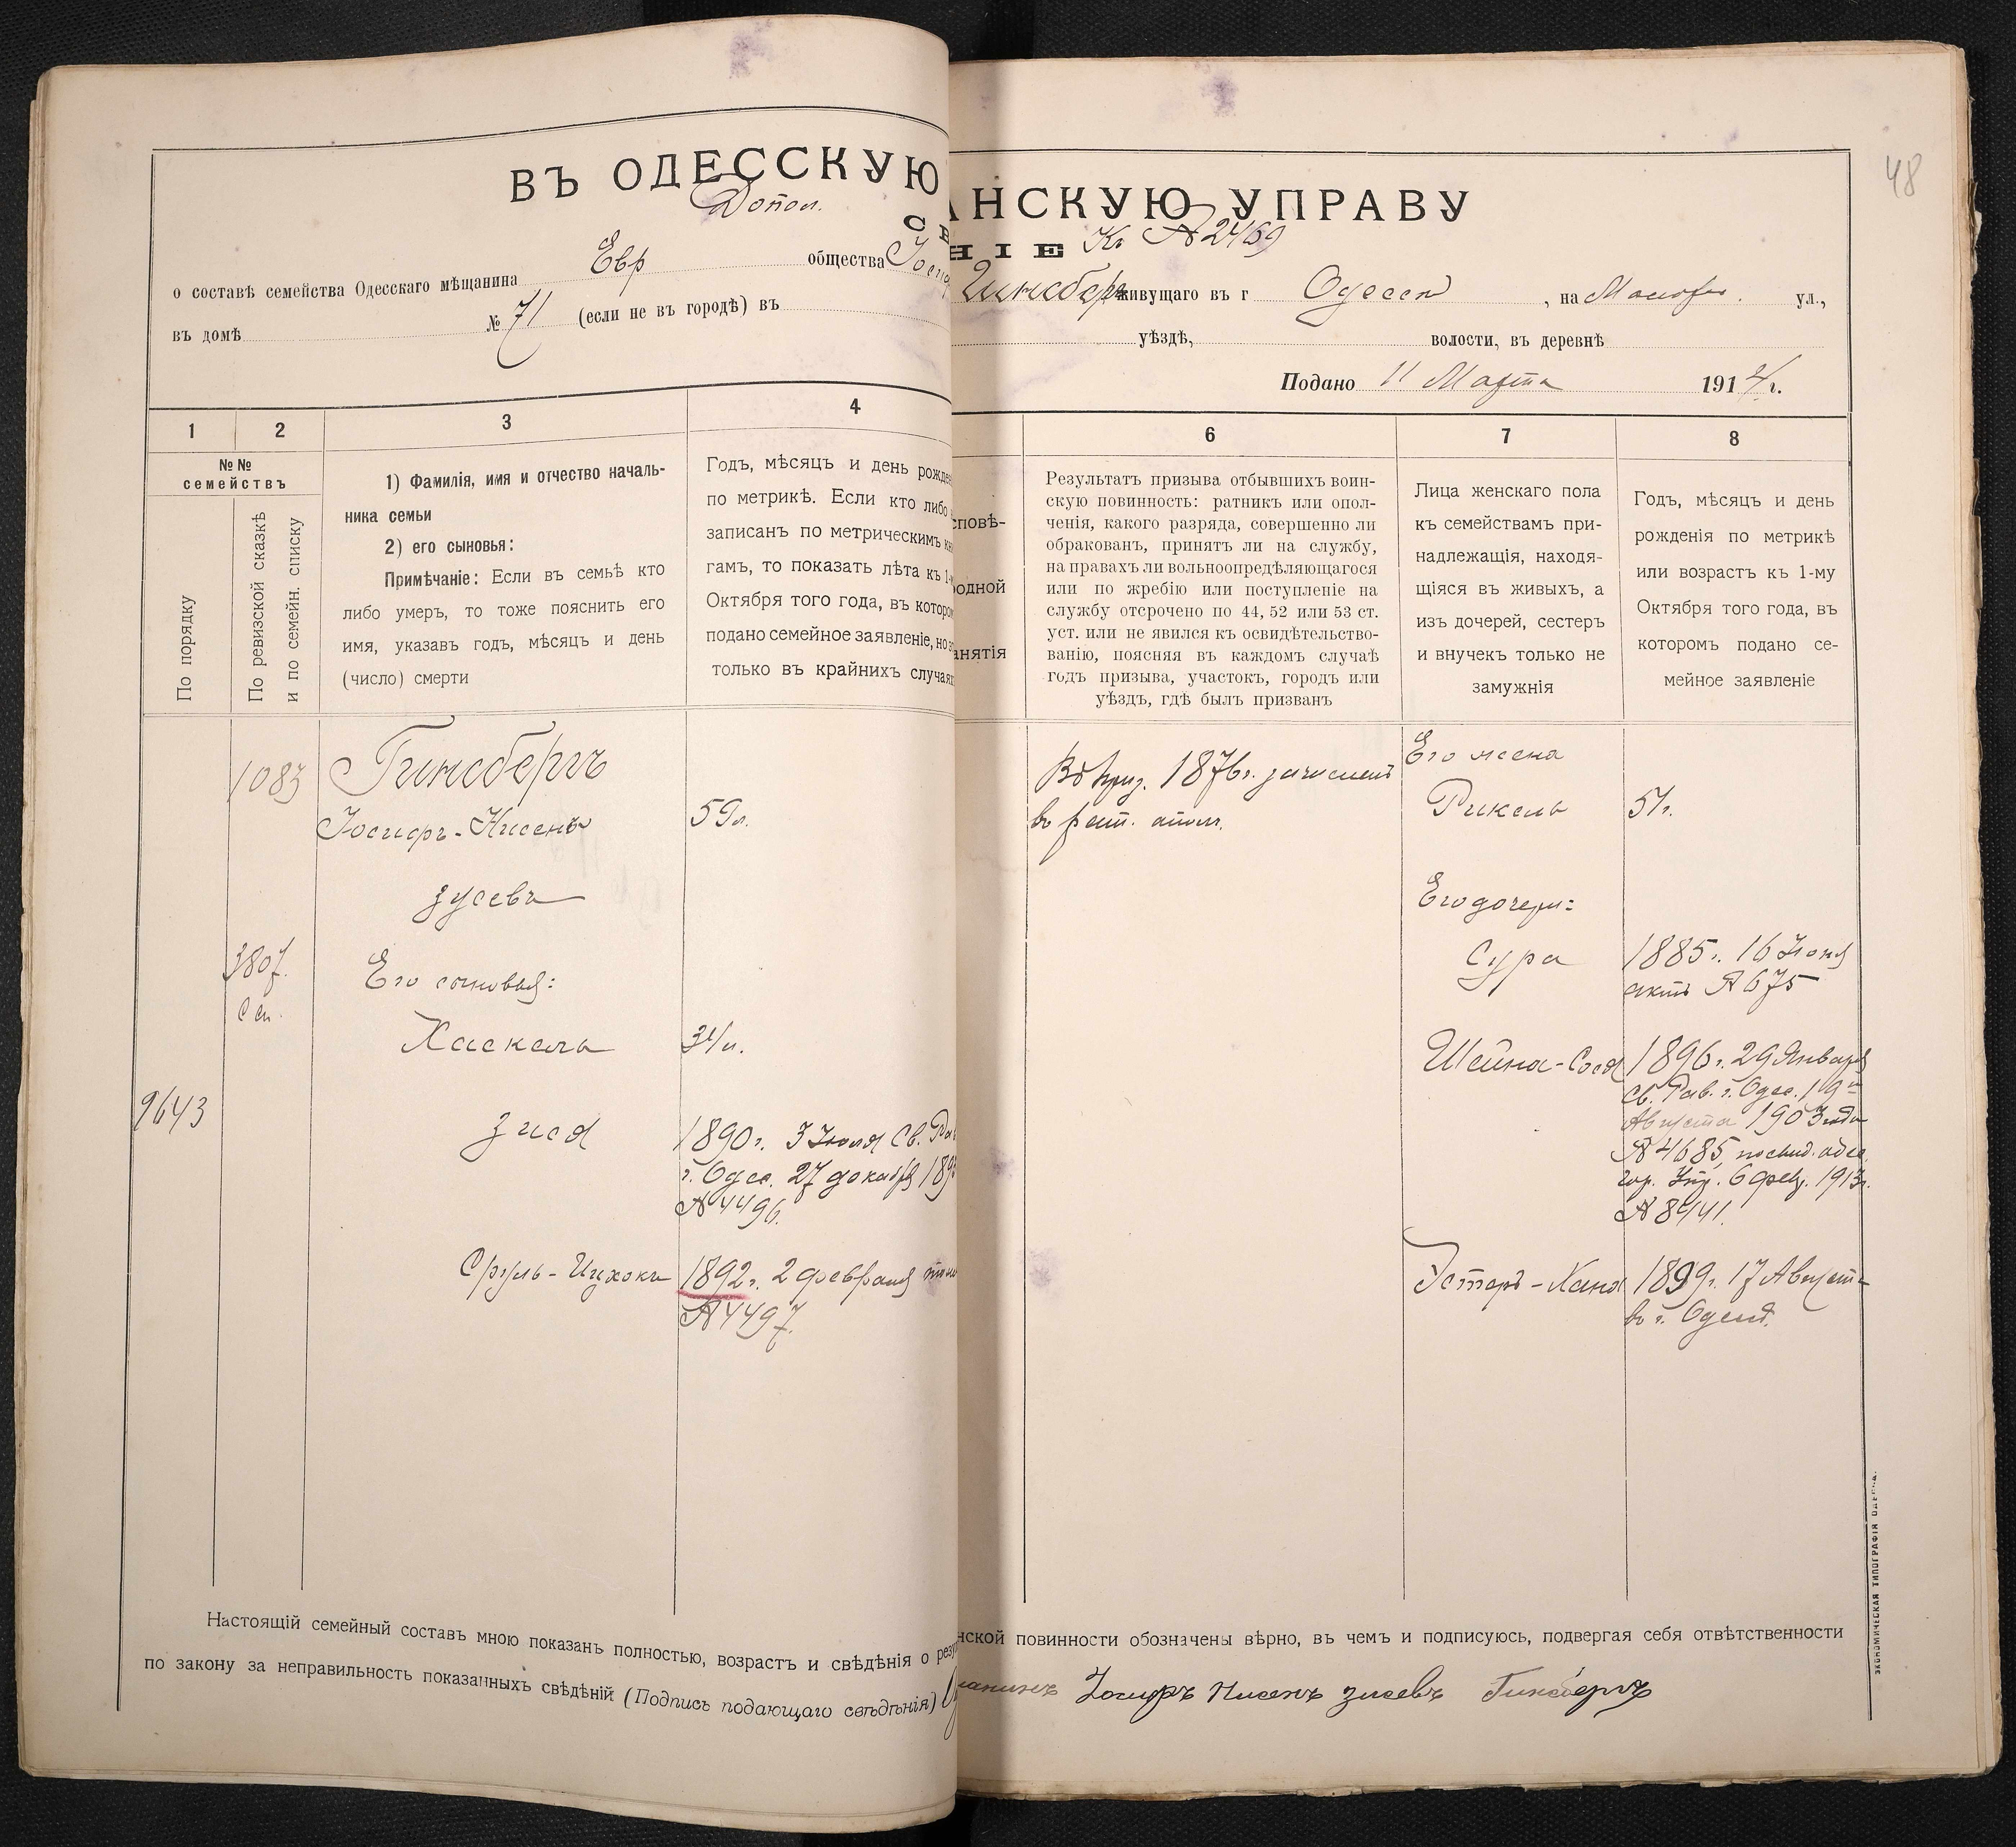 48
ВЪ ОДЕССКУЮ
НСКУЮ УПРАВУ
Допол.
НІЕ Къ № 2469
о составѣ семейства Одесскаго мѣщанина Евр общества
Гинсберга живущаго въ г Одессѣ, на ул.,
въ домѣ № 71 (если не въ городѣ) въ
уѣздѣ, волости, въ деревнѣ
Подано 11 Марта 1914 г.
1
2
3
4
6
7
8
№№
семействъ
По порядку
По ревизской сказкѣ
и по семейн. списку
1) Фамилія, имя и отчество началь-
ника семьи
2) его сыновья:
Примѣчаніе: Если въ семьѣ кто
либо умеръ, то тоже пояснить его
имя, указавъ годъ, мѣсяцъ и день
(число) смерти
Годъ, мѣсяцъ и день рожде
по метрикѣ. Если кто либо
записанъ по метрическимъ
гамъ, то показать лѣта къ 1-
Октября того года, въ которо
подано семейное заявленіе, но
только въ крайнихъ случая
сповѣ-
родной
анятія
Результатъ призыва отбывшихъ воин-
скую повинность: ратникъ или опол-
ченія, какого разряда, совершенно ли
обракованъ, принятъ ли на службу,
на правахъ ли вольноопредѣляющагося
или по жребію или поступленіе на
службу отсрочено по 44, 52 или 53 ст.
уст. или не явился къ освидѣтельство-
ванію, поясняя въ каждомъ случаѣ
годъ призыва, участокъ, городъ или
уѣздъ, гдѣ былъ призванъ
Лица женскаго пола
къ семействамъ при-
надлежащія, находя-
щіяся въ живыхъ, а
изъ дочерей, сестеръ
и внучекъ только не
замужнія
Годъ, мѣсяцъ и день
рожденія по метрикѣ
или возрастъ къ 1-му
Октября того года, въ
которомъ подано се-
мейное заявленіе
1083
Гинсбергъ
Іосифъ-Нисенъ
59 л.
Зусевъ
3807.
Его сыновья:
Хаскель
34 л.
9643
Зися
1890 г. 3 Іюля Св. Ра
г. Одес. 27 декабря 189
№ 4496.
Сруль-Ицхокъ
1892 г. 2 февраля
№ 4497.
Въ приз. 1876 г. зачисленъ
въ рат. опол.
Его жена
Рикель
51 г.
Его дочери:
Сура
1885 г. 16 Іюня
актъ № 675
Шейна-Сося
1896 г. 29 Января
Св. Рав. г. Одес. 19го
Августа 1903 года
№ 4685, одес.
гор. Упр. 6 февр. 1913 г.
№ 8441.
Эстеръ-Хана
1899 г. 17 Августа
въ г. Одессѣ.
Настоящій семейный составъ мною показанъ полностью, возрастъ и свѣдѣнія о резу
нской повинности обозначены вѣрно, въ чемъ и подписуюсь, подвергая себя отвѣтственности
по закону за неправильность показанныхъ свѣдѣній (Подпись подающаго свѣдѣнія)
щанинъ Іосифъ Нисенъ Зисевъ Гинсбергъ
ЭКОНОМИЧЕСКАЯ ТИПОГРАФІЯ ОДЕССА.